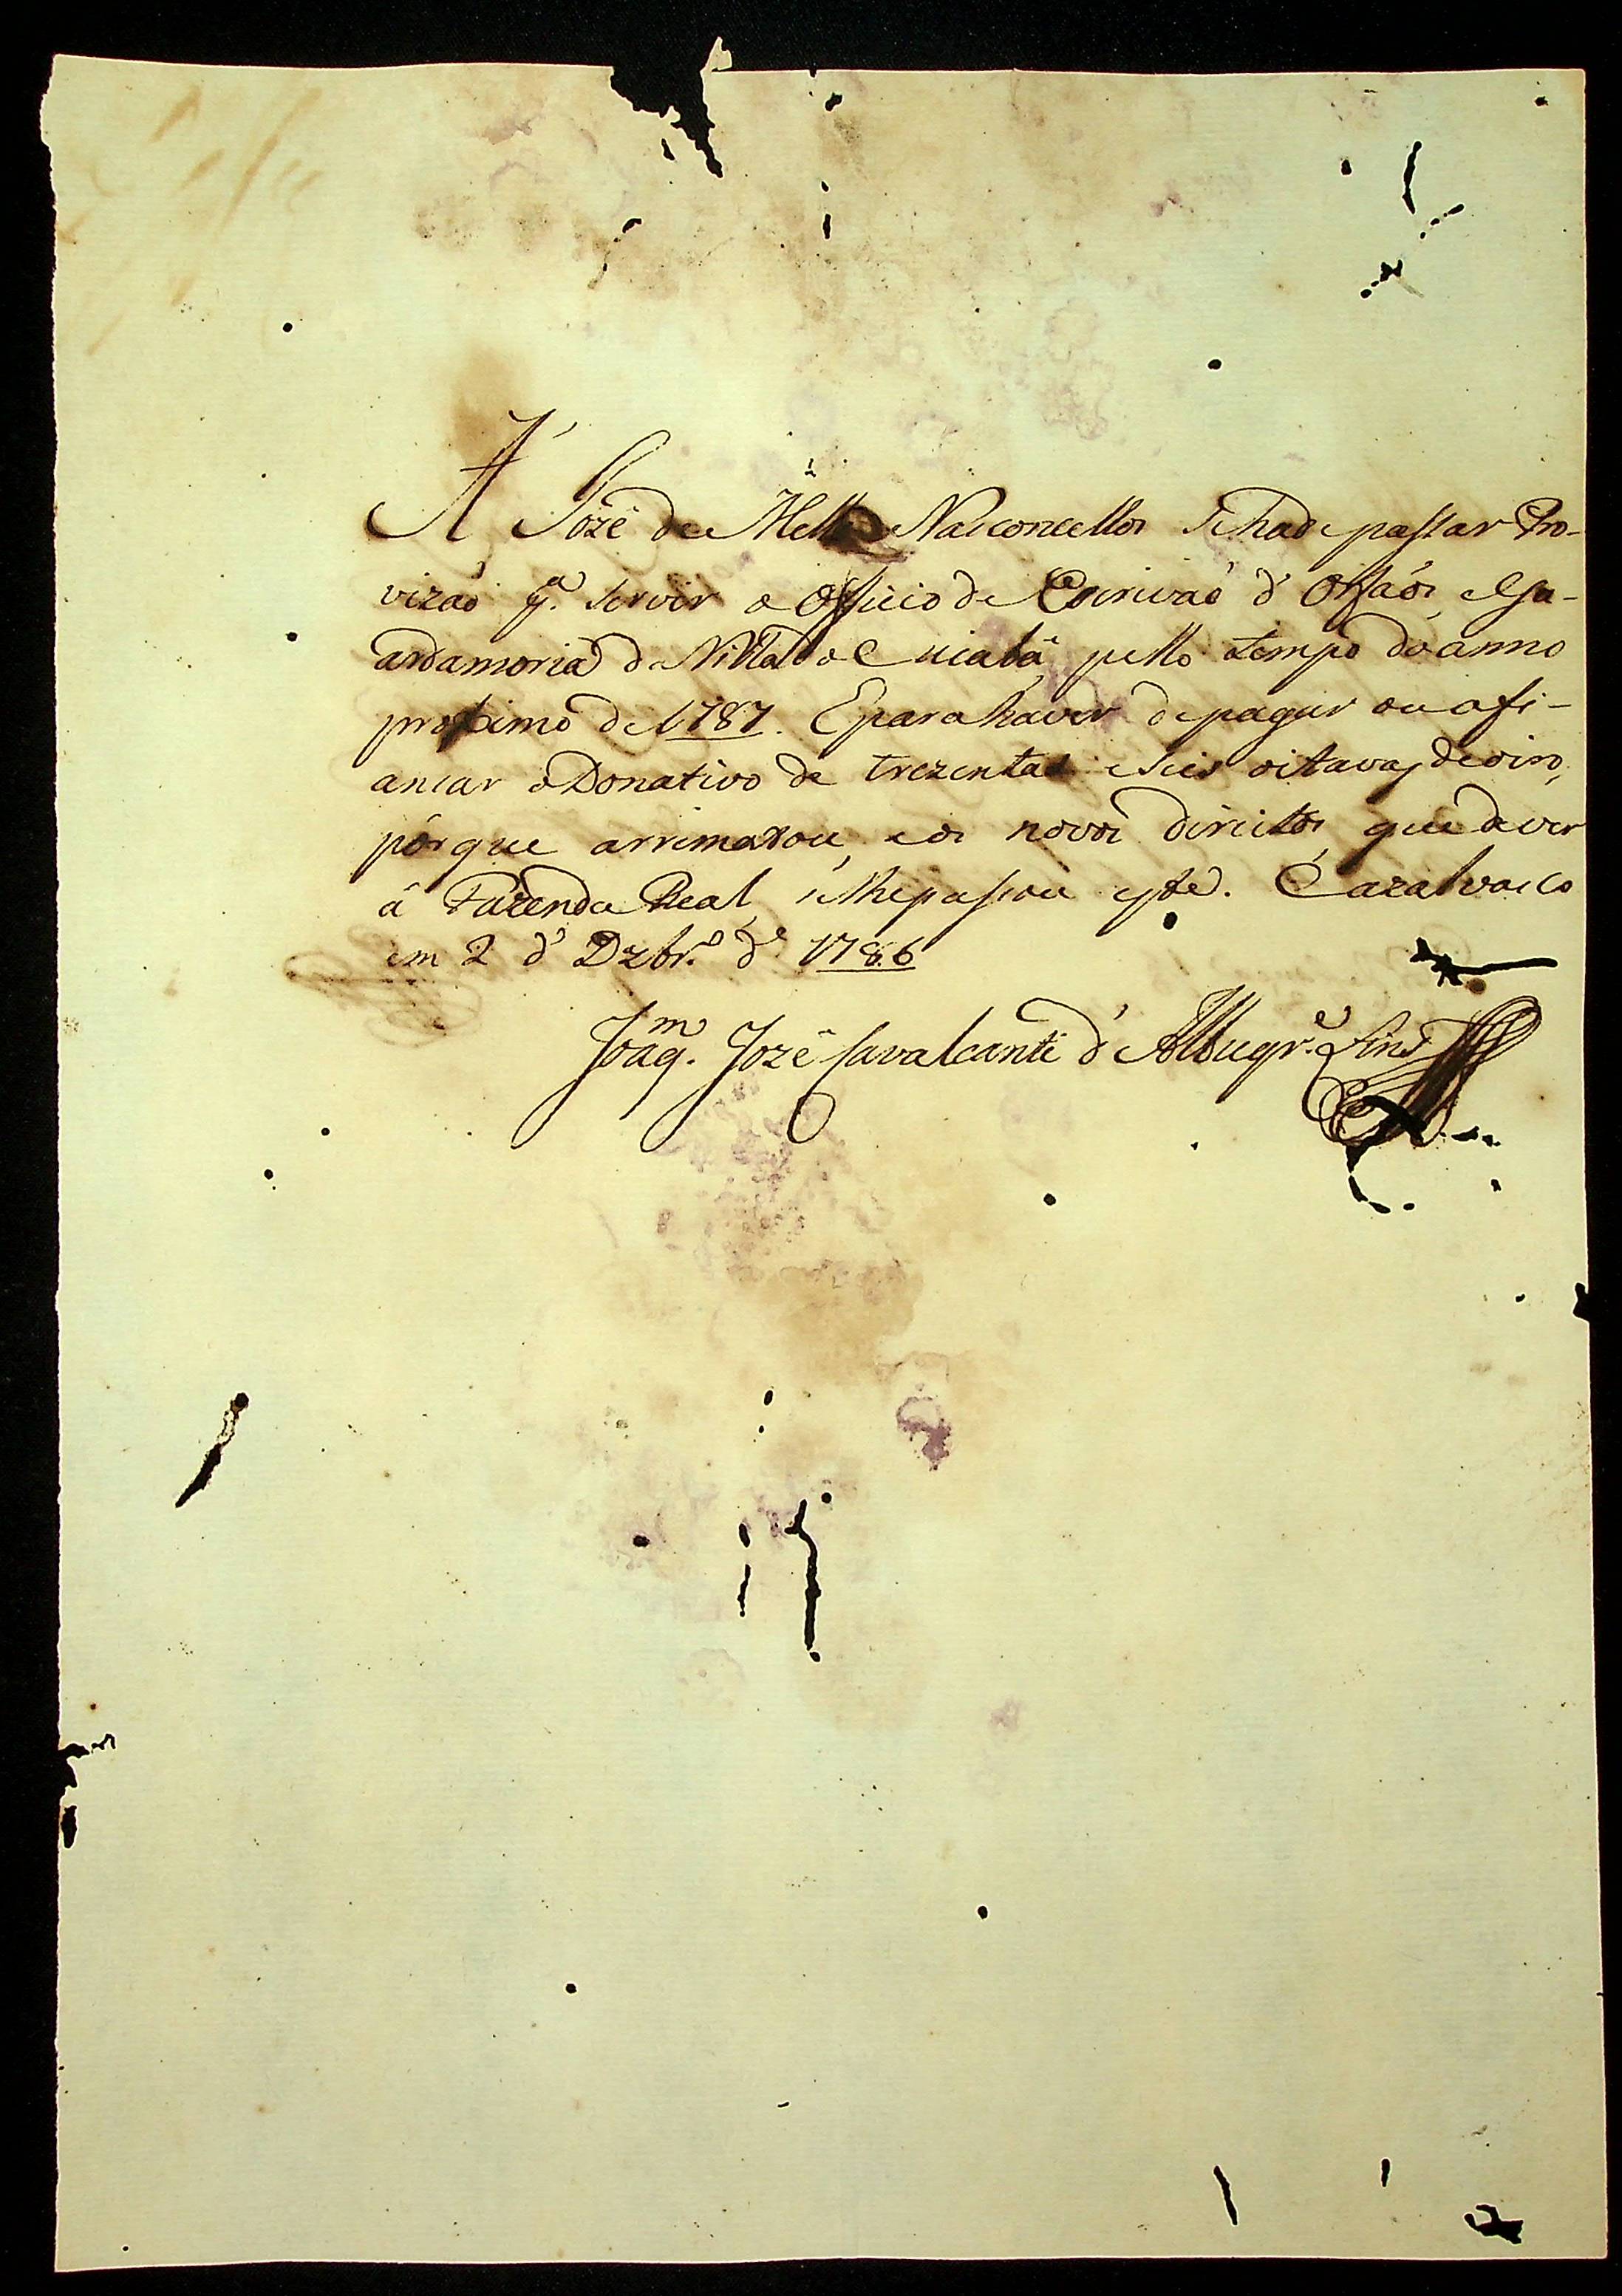 A Jozé de Mello Vasconcellos se hade passar Pro-
vizaõ pª. servir o Officio de Escrivaõ d' Orfaõs, e Gu-
ardamoria da Villa do Cuiabâ, pello tempo do anno
proximo de 1787. E para haver de pagar ou afi-
ancar o Donativo de trezentas e seis oitavas de oiro,
porque arrematou, e os novos direitos, que dever
â Fazenda Real, se lhe passou este. Cazalvasco
em 2 d' Dzbrº. dº 1786
Joaqᵐ. Jozê Cavalcanti d' Albuqrᵉ. Lins